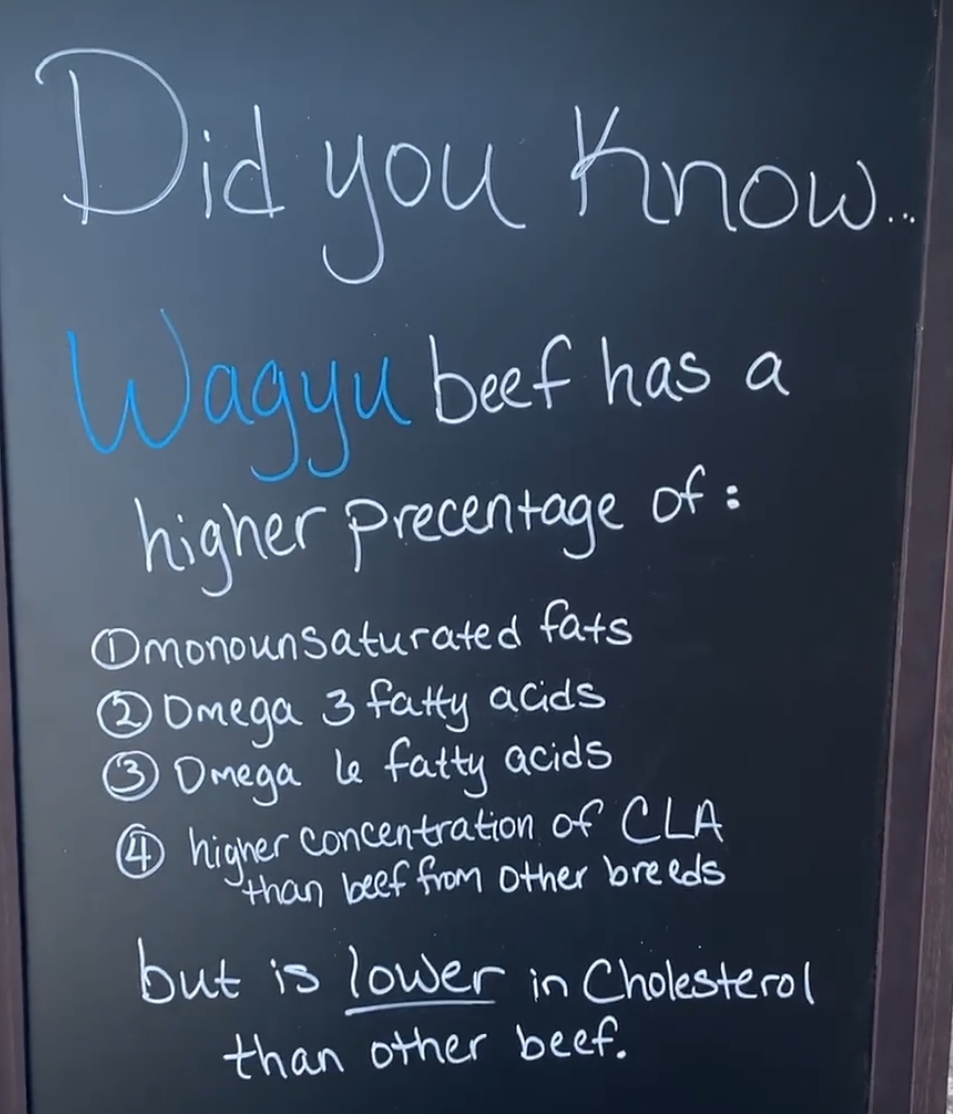 Did you Know...
Wagyu beef has a
higher precentage of:
① monounsaturated fats
② Omega 3 fatty acids
③ Omega 6 fatty acids
④ higher concentration of CLA
than beef from other breeds
but is lower in Cholesterol
than other beef.